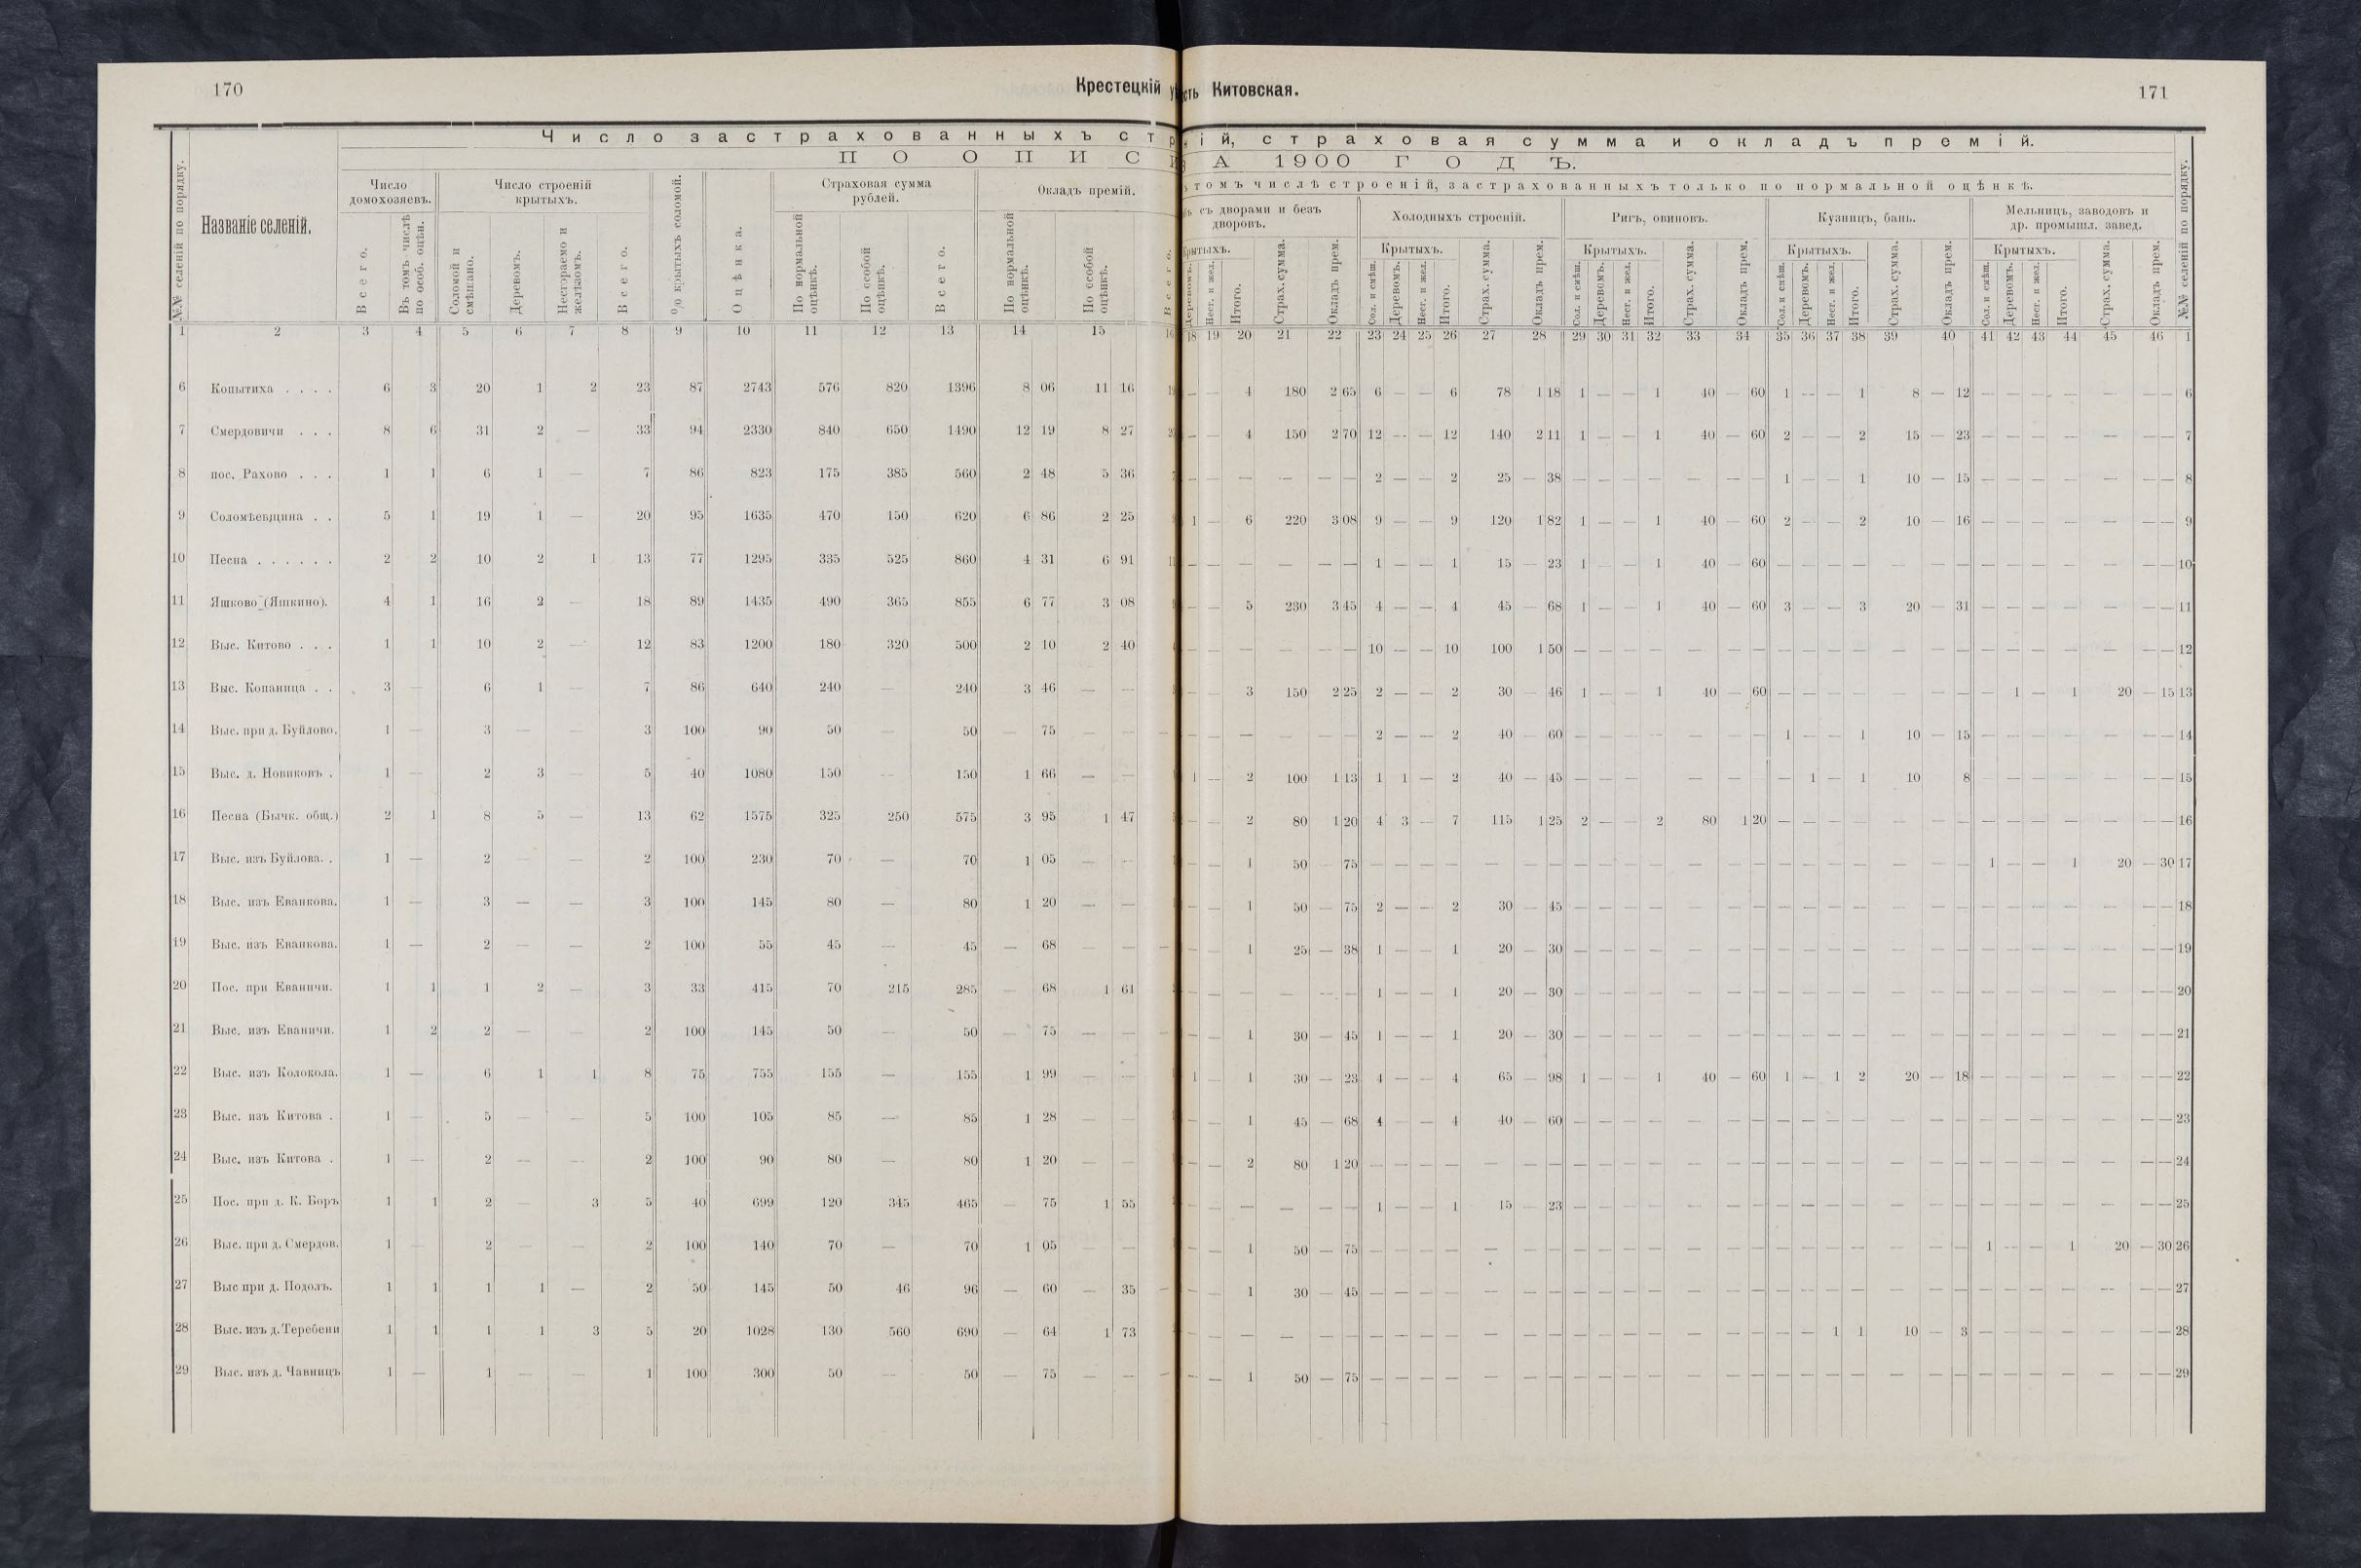 170
Крестецкій
Число застрахованныхъ
ПО ОПИС
№№ селеній по порядку.
Названіе селеній.
Число домохозяевъ.
Всего.
Въ томъ числѣ по особ. оцѣн.
Число строеній крытыхъ.
Соломой и смѣшано.
Деревомъ.
Несгораемо и желѣзомъ.
Всего.
% крытыхъ соломой.
Оцѣнка.
Страховая сумма рублей.
По нормальной оцѣнкѣ.
По особой оцѣнкѣ.
Всего.
Окладъ премій.
По нормальной оцѣнкѣ.
По особой оцѣнкѣ.
Всего.
1 2 3 4 5 6 7 8 9 10 11 12 13 14 15
6 Копытиха . . . . 6 3 20 1 2 23 87 2743 576 820 1396 8 06 11 16
7 Смердовичи . . . 8 6 31 2 — 33 94 2330 840 650 1490 12 19 8 27
8 пос. Рахово . . . 1 1 6 1 — 7 86 823 175 385 560 2 48 5 36
9 Соломѣевщина . . 5 1 19 1 — 20 95 1635 470 150 620 6 86 2 25
10 Песна . . . . . . 2 2 10 2 1 13 77 1295 335 525 860 4 31 6 91
11 Яшково (Яшкино). 4 1 16 2 — 18 89 1435 490 365 855 6 77 3 08
12 Выс. Китово . . . 1 1 10 2 — 12 83 1200 180 320 500 2 10 2 40
13 Выс. Копаница . . 3 — 6 1 — 7 86 640 240 — 240 3 46 — —
14 Выс. при д. Буйлово. 1 — 3 — — 3 100 90 50 — 50 — 75 — —
15 Выс. д. Новиковъ . 1 — 2 3 — 5 40 1080 150 — 150 1 66 — —
16 Песна (Бычк. общ.) 2 1 8 5 — 13 62 1575 325 250 575 3 95 1 47
17 Выс. изъ Буйлова. . 1 — 2 — — 2 100 230 70 — 70 1 05 — —
18 Выс. изъ Еванкова. 1 — 3 — — 3 100 145 80 — 80 1 20 — —
19 Выс. изъ Еванкова. 1 — 2 — — 2 100 55 45 — 45 — 68 — —
20 Пос. при Еваничи. 1 1 1 2 — 3 33 415 70 215 285 — 68 1 61
21 Выс. изъ Еваничи. 1 2 2 — — 2 100 145 50 — 50 — 75 — —
22 Выс. изъ Колокола. 1 — 6 1 1 8 75 755 155 — 155 1 99 — —
23 Выс. изъ Китова . 1 — 5 — — 5 100 105 85 — 85 1 28 — —
24 Выс. изъ Китова . 1 — 2 — — 2 100 90 80 — 80 1 20 — —
25 Пос. при д. К. Боръ 1 1 2 — 3 5 40 699 120 345 465 — 75 1 55
26 Выс. при д. Смердов. 1 — 2 — — 2 100 140 70 — 70 1 05 — —
27 Выс при д. Подолъ. 1 1 1 1 — 2 50 145 50 46 96 — 60 — 35
28 Выс. изъ д. Теребени 1 1 1 1 3 5 20 1028 130 560 690 — 64 1 73
29 Выс. изъ д. Чавницъ 1 — 1 — — 1 100 300 50 — 50 — 75 — —
сть Китовская.
171
ній, страховая сумма и окладъ премій.
А 1900 ГОДЪ.
томъ числѣ строеній, застрахованныхъ только по нормальной оцѣнкѣ.
съ дворами и безъ дворовъ.
Крытыхъ.
Деревомъ.
Нест. и жел.
Итого.
Страх. сумма.
Окладъ прем.
Холодныхъ строеній.
Крытыхъ.
Сол. и смѣш.
Деревомъ.
Нест. и жел.
Итого.
Страх. сумма.
Окладъ прем.
Ригъ, овиновъ.
Крытыхъ.
Сол. и смѣш.
Деревомъ.
Нест. и жел.
Итого.
Страх. сумма.
Окладъ прем.
Кузницъ, бань.
Крытыхъ.
Сол. и смѣш.
Деревомъ.
Нест. и жел.
Итого.
Страх. сумма.
Окладъ прем.
Мельницъ, заводовъ и др. промышл. завед.
Крытыхъ.
Сол. и смѣш.
Деревомъ.
Нест. и жел.
Итого.
Страх. сумма.
Окладъ прем.
№№ селеній по порядку.
18 19 20 21 22 23 24 25 26 27 28 29 30 31 32 33 34 35 36 37 38 39 40 41 42 43 44 45 46 1
— — 4 180 2 65 6 — — 6 78 1 18 1 — — 1 40 — 60 1 — — 1 8 — 12 — — — — — — — 6
— — 4 150 2 70 12 — — 12 140 2 11 1 — — 1 40 — 60 2 — — 2 15 — 23 — — — — — — — 7
— — — — — — 2 — — 2 25 — 38 — — — — — — — 1 — — 1 10 — 15 — — — — — — — 8
1 — 6 220 3 08 9 — — 9 120 1 82 1 — — 1 40 — 60 2 — — 2 10 — 16 — — — — — — — 9
— — — — — — 1 — — 1 15 — 23 1 — — 1 40 — 60 — — — — — — — — — — — — — — 10
— — 5 230 3 45 4 — — 4 45 — 68 1 — — 1 40 — 60 3 — — 3 20 — 31 — — — — — — — 11
— — — — — — 10 — — 10 100 1 50 — — — — — — — — — — — — — — — — — — — — — 12
— — 3 150 2 25 2 — — 2 30 — 46 1 — — 1 40 — 60 — — — — — — — — 1 — 1 20 — 15 13
— — — — — — 2 — — 2 40 — 60 — — — — — — — 1 — — 1 10 — 15 — — — — — — — 14
1 — 2 100 1 13 1 1 — 2 40 — 45 — — — — — — — 1 — 1 10 8 — — — — — — — 15
— — 2 80 1 20 4 3 — 7 115 1 25 2 — — 2 80 1 20 — — — — — — — — — — — — — — 16
— — 1 50 75 — — — — — — — — — — — — — — — — — — — — — 1 — — 1 20 — 30 17
— — 1 50 — 75 2 — — 2 30 — 45 — — — — — — — — — — — — — — — — — — — — — 18
— — 1 25 — 38 1 — — 1 20 — 30 — — — — — — — — — — — — — — — — — — — — — 19
— — — — — — 1 — — 1 20 — 30 — — — — — — — — — — — — — — — — — — — — — 20
— — 1 30 — 45 1 — — 1 20 — 30 — — — — — — — — — — — — — — — — — — — — — 21
1 — 1 30 — 23 4 — — 4 65 — 98 1 — — 1 40 — 60 1 — 1 2 20 — 18 — — — — — — — 22
— — 1 45 — 68 4 — — 4 40 — 60 — — — — — — — — — — — — — — — — — — — — — 23
— — 2 80 1 20 — — — — — — — — — — — — — — — — — — — — — — — — — — — — 24
— — — — — — 1 — — 1 15 — 23 — — — — — — — — — — — — — — — — — — — — — 25
— — 1 50 — 75 — — — — — — — — — — — — — — — — — — — — — 1 — — 1 20 — 30 26
— — 1 30 — 45 — — — — — — — — — — — — — — — — — — — — — — — — — — — — 27
— — — — — — — — — — — — — — — — — — — — — — 1 1 10 — 3 — — — — — — — 28
— — 1 50 — 75 — — — — — — — — — — — — — — — — — — — — — — — — — — — — 29